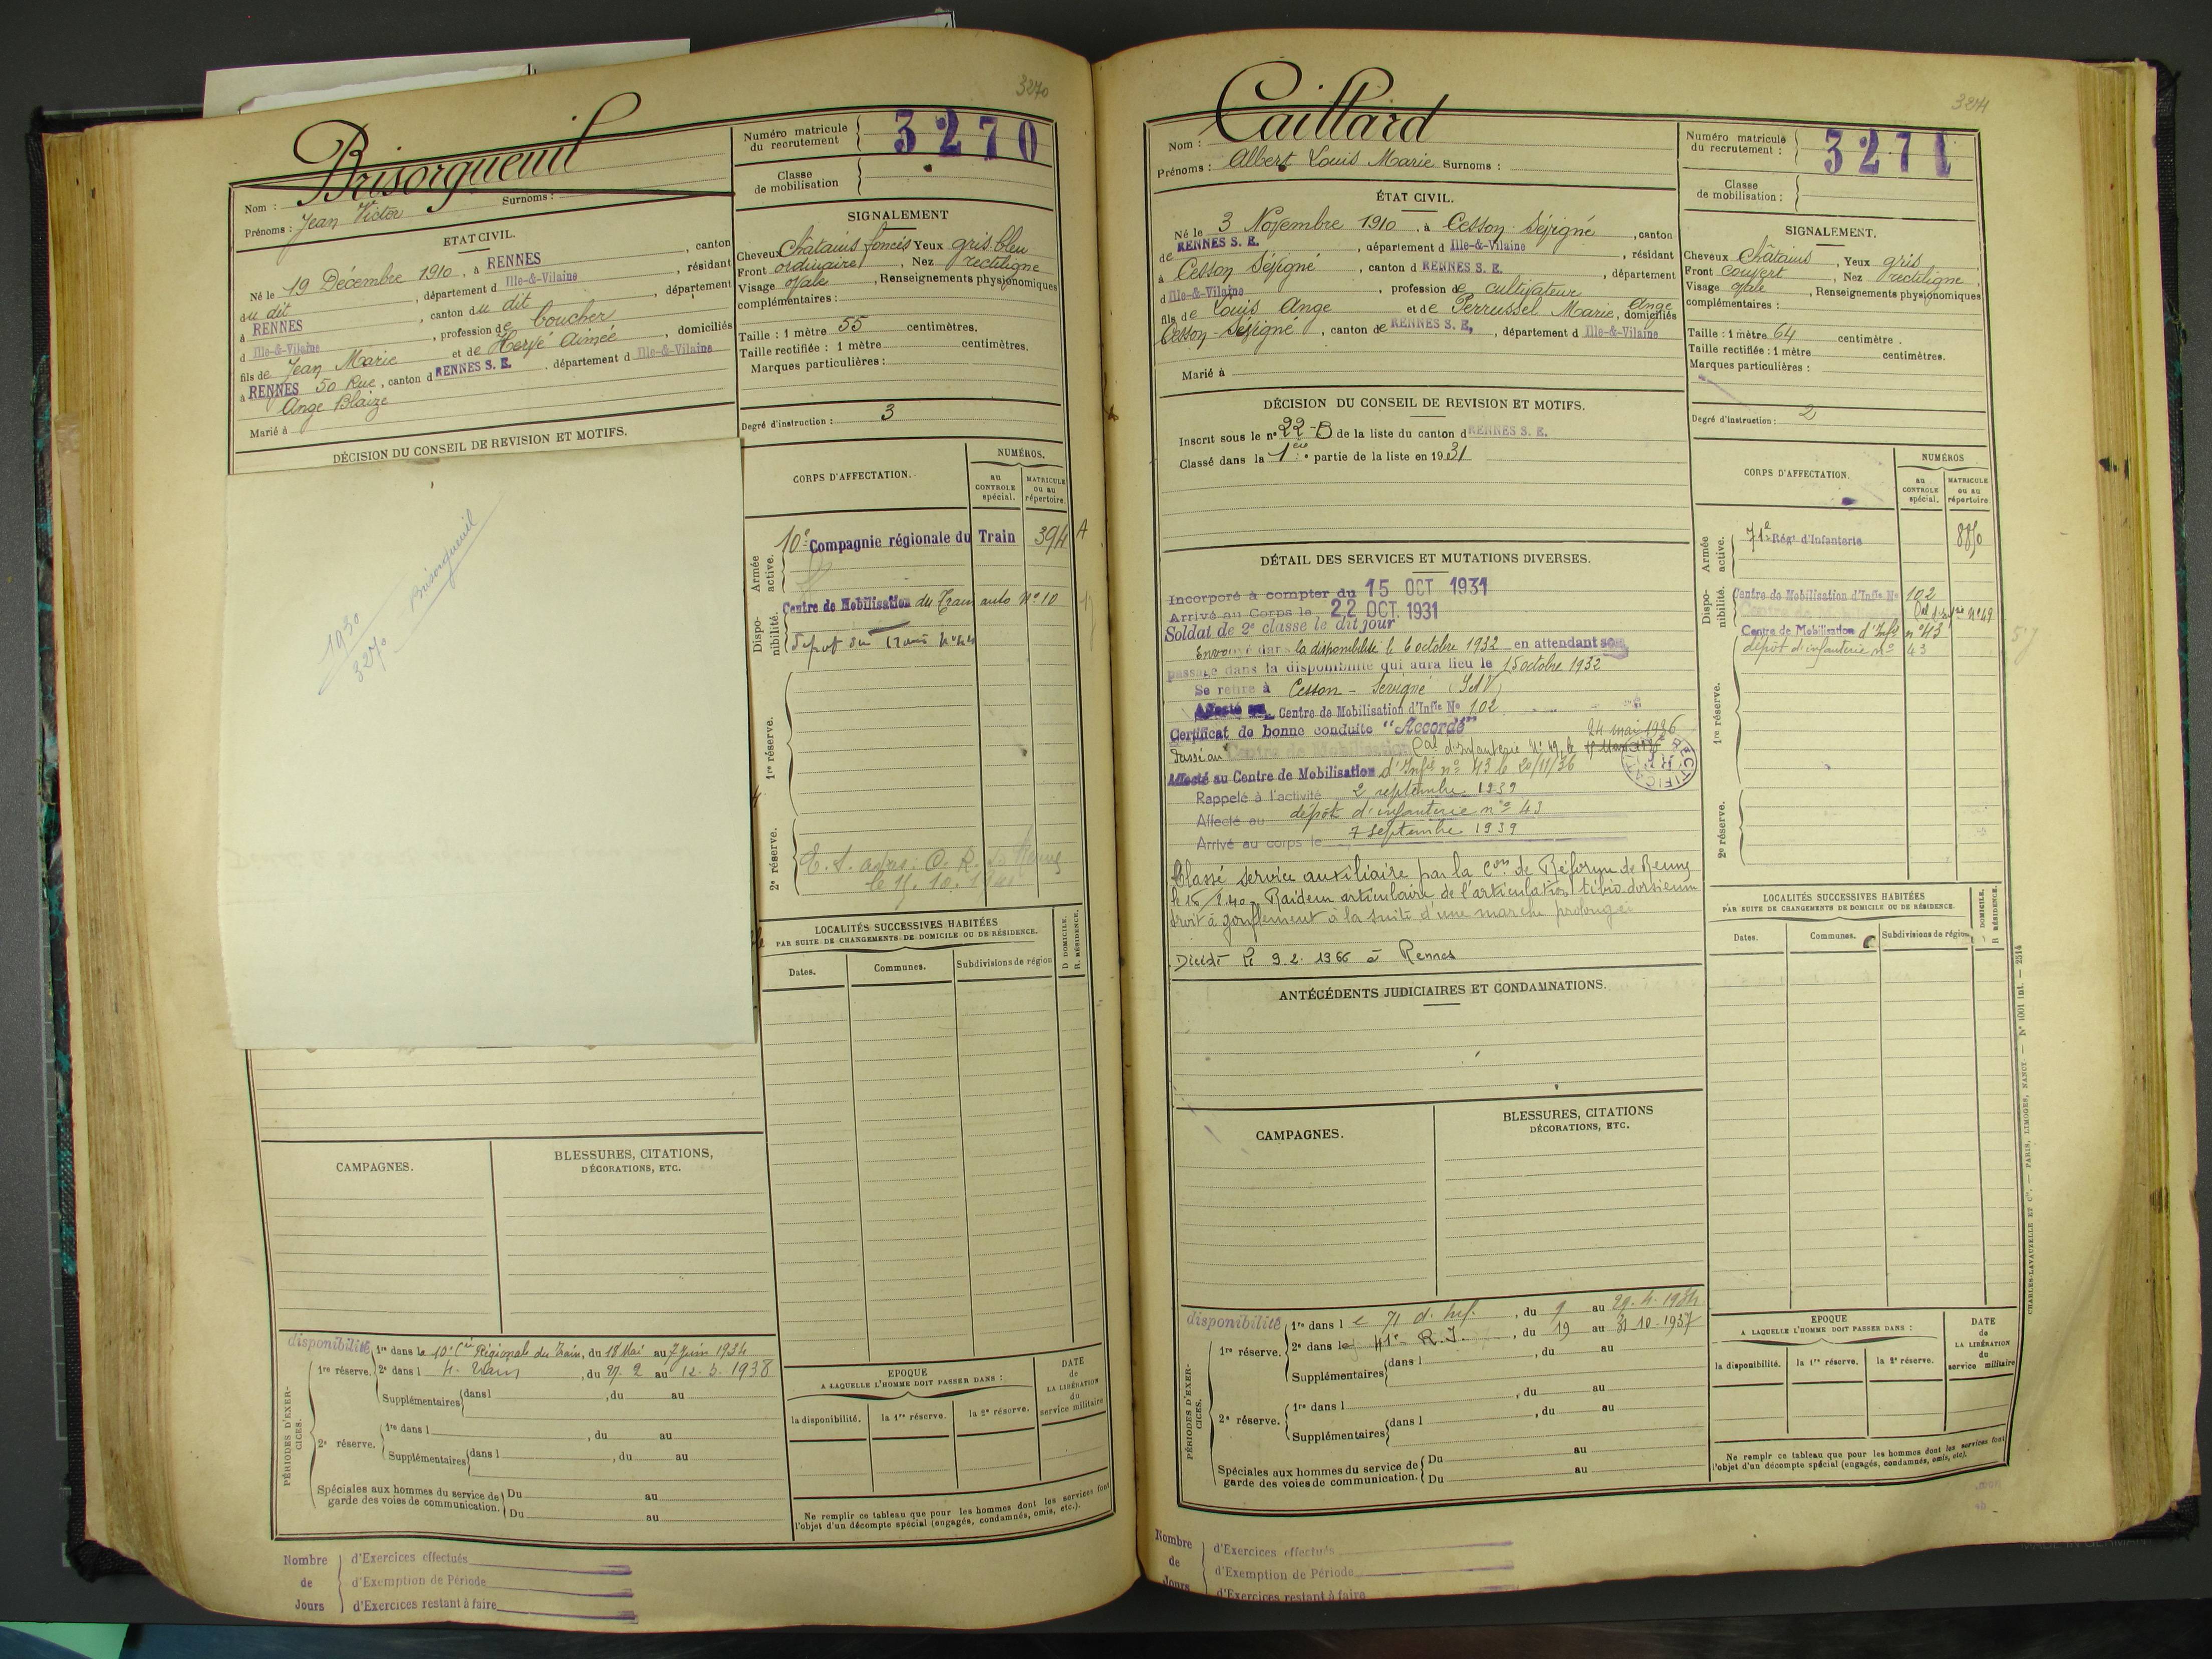 3270
Brisorgueuil
Nom :
Prénoms : Jean Victor Surnoms :
Numéro matricule du recrutement 3270
Classe de mobilisation
ETAT CIVIL.
Né le 19 Décembre 1910, à RENNES, canton
du dit, département d Ille-&-Vilaine, résidant
à RENNES, canton du dit, département
d Ille-&-Vilaine, profession de boucher
fils de Jean Marie et de Hervé Aimée, domiciliés
à RENNES 50 Rue, canton d RENNES S. E., département d Ille-&-Vilaine
Ange Blaize
Marié à
SIGNALEMENT
Cheveux Châtains foncés Yeux gris bleu
Front ordinaire, Nez rectiligne
Visage ovale, Renseignements physionomiques
complémentaires :
Taille : 1 mètre 55 centimètres.
Taille rectifiée : 1 mètre centimètres.
Marques particulières :
Degré d'instruction : 3
DÉCISION DU CONSEIL DE REVISION ET MOTIFS.
1930
3270
Brisorgueuil
CORPS D'AFFECTATION.
NUMÉROS.
au CONTROLE spécial.
MATRICULE ou au répertoire.
Armée active.
10e Compagnie régionale du Train 394 A
Disponibilité.
Centre de Mobilisation du Train auto No 10
1re réserve.
2e réserve.
LOCALITÉS SUCCESSIVES HABITÉES
PAR SUITE DE CHANGEMENTS DE DOMICILE OU DE RÉSIDENCE.
Dates.
Communes.
Subdivisions de région
D DOMICILE.
R. RÉSIDENCE.
CAMPAGNES.
BLESSURES, CITATIONS,
DÉCORATIONS, ETC.
PÉRIODES D'EXERCICES.
disponibilité
1re dans la 10e Cie Régionale du Train, du 18 Mai au 7 Juin 1934
1re réserve. 2e dans l, du 27. 2 au 12. 3. 1938
Supplémentaires dans l, du au
2e réserve. 1re dans l, du au
Supplémentaires dans l, du au
Spéciales aux hommes du service de garde des voies de communication. Du au
Du au
EPOQUE
A LAQUELLE L'HOMME DOIT PASSER DANS :
la disponibilité.
la 1re réserve.
la 2e réserve.
DATE de LA LIBÉRATION du service militaire
Ne remplir ce tableau que pour les hommes dont les services font
l'objet d'un décompte spécial (engagés, condamnés, omis, etc.).
Nombre de Jours
d'Exercices effectués
d'Exemption de Période
d'Exercices restant à faire
3271
Caillard
Nom :
Prénoms : Albert Louis Marie Surnoms :
Numéro matricule du recrutement : 3271
Classe de mobilisation :
ÉTAT CIVIL.
Né le 3 Novembre 1910, à Cesson-Sévigné, canton
de RENNES S. E., département d Ille-&-Vilaine, résidant
à Cesson Sévigné, canton d RENNES S. E., département
d Ille-&-Vilaine, profession de cultivateur
fils de Louis Ange et de Perrussel Marie, Ange domiciliés
Cesson-Sévigné, canton de RENNES S. E., département d Ille-&-Vilaine
Marié à
SIGNALEMENT.
Cheveux Châtains, Yeux gris
Front couvert, Nez rectiligne
Visage ovale, Renseignements physionomiques
complémentaires :
Taille : 1 mètre 64 centimètre.
Taille rectifiée : 1 mètre centimètres.
Marques particulières :
Degré d'instruction : 2
DÉCISION DU CONSEIL DE REVISION ET MOTIFS.
Inscrit sous le no 22-B de la liste du canton d RENNES S. E.
Classé dans la 1ère partie de la liste en 1931
DÉTAIL DES SERVICES ET MUTATIONS DIVERSES.
Incorporé à compter du 15 OCT 1931
Arrivé au Corps le 22 OCT. 1931
Soldat de 2e classe le dit jour
Envoyé dans la disponibilité le 6 octobre 1932 en attendant son
passage dans la disponibilité qui aura lieu le 15 octobre 1932
Se retire à Cesson-Sévigné (I&V)
Affecté au Centre de Mobilisation d'Infie No 102
Certificat de bonne conduite "Accordé"
24 mai 1936
Passé au Centre de Mobilisation d'Infanterie No 49 le
RECTIFICAT
Affecté au Centre de Mobilisation d'Infie no 43 le 20/11/36
Rappelé à l'activité 2 septembre 1939
Affecté au dépôt d'infanterie no 43
Arrivé au corps le 7 septembre 1939
Classé service auxiliaire par la Con de Réforme de Rennes
le 16/2.40. Raideur articulaire de l'articulation tibio tarsienne
droit à gonflement à la suite d'une marche prolongée
Décédé le 9.2.1966 à Rennes
CORPS D'AFFECTATION.
NUMÉROS
au CONTROLE spécial.
MATRICULE ou au répertoire
Armée active.
71e Régt d'Infanterie 8850
Disponibilité.
Centre de Mobilisation d'Infie No 102
Centre de Mobilisation No 49
Centre de Mobilisation d'Infie no 43
dépôt d'infanterie no 43
57
1re réserve.
2e réserve.
LOCALITÉS SUCCESSIVES HABITÉES
PAR SUITE DE CHANGEMENTS DE DOMICILE OU DE RÉSIDENCE.
Dates.
Communes.
Subdivisions de région
D DOMICILE.
R RÉSIDENCE.
ANTÉCÉDENTS JUDICIAIRES ET CONDAMNATIONS.
CAMPAGNES.
BLESSURES, CITATIONS
DÉCORATIONS, ETC.
PÉRIODES D'EXERCICES.
disponibilité
1re dans l e 71 d. inf., du 9 au 29. 4. 1934
1re réserve. 2e dans le 41e R. I., du 19 au 31 10-1937
Supplémentaires dans l, du au
, du au
2e réserve. 1re dans l, du au
Supplémentaires dans l
Spéciales aux hommes du service de garde des voies de communication. Du au
Du au
EPOQUE
A LAQUELLE L'HOMME DOIT PASSER DANS :
la disponibilité.
la 1re réserve.
la 2e réserve.
DATE de LA LIBÉRATION du service militaire
Ne remplir ce tableau que pour les hommes dont les services font
l'objet d'un décompte spécial (engagés, condamnés, omis, etc).
CHARLES-LAVAUZELLE ET Cie. — PARIS, LIMOGES, NANCY. — No 1001 int. — 2514
Nombre de Jours
d'Exercices effectués
d'Exemption de Période
d'Exercices restant à faire
MADE IN GERMANY